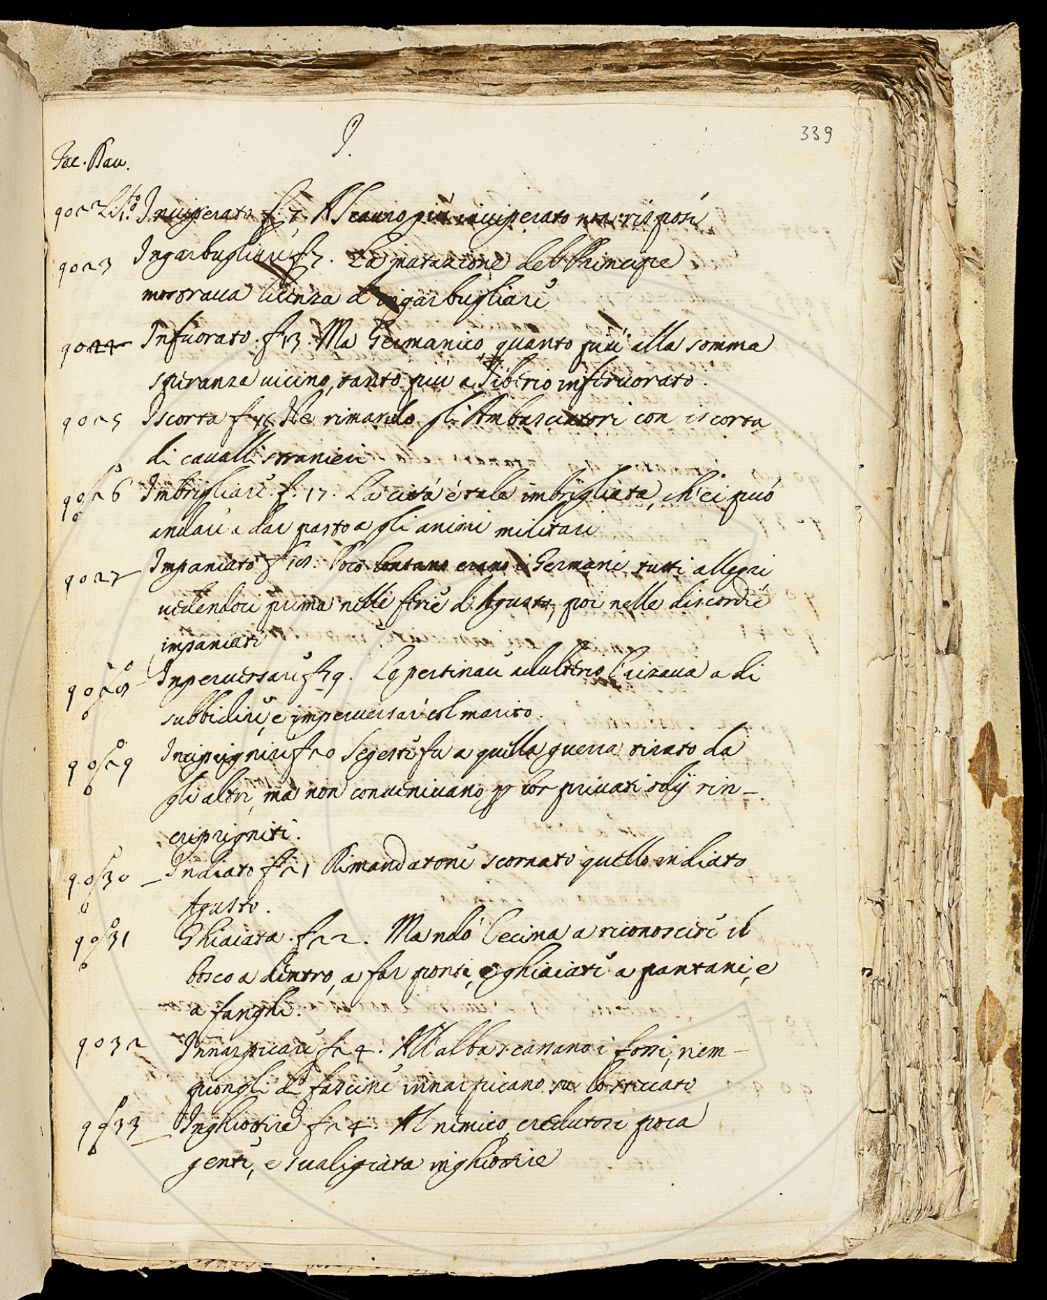 I.
339
Tac. Dav.
9022 Lto. Inciperato f. 7. Al cauno più inciperato non risposi
9023 Ingarbugliare f. 7. La mutazione del Principe
mostraua licenza d'ingarbugliare
9024 Infuorato. f. 13. Ma Germanico quanto piu alla somma
speranza uicino, tanto piu a Tiberio inferuorato.
9025 Iscorta f. 16 Ne rimandò gli Ambasciatori con iscorta
di caualli stranieri
9026 Imbrigliare f. 17. La città è tale imbrigliata, ch'ei può
andare a dar pasto a gli animi militari
9027 Impaniato f. 18. Poco lontano erano i Germani tutti allegri
uedendoci prima nelle ferie d'Agusto, poi nelle discordie
impaniati
9028 Inperuersare f. 19. Lo pertinace adultero l'aizaua a di
subbidire, e imperuersar col marito.
9029 Inciprignire f. 20 Segeste fu a quella guerra tirato da
gli altri, ma non conueniuano per lor priuati odij rin-
ciprigniti.
9030 Indiato f. 21 Rimandatone scornato quello indiato
Agusto.
9031 Ghiaiata. f. 22. Mandò Cecina a riconoscere il
bosco a dentro, a far ponti, e ghiaiate a pantani, e
a fanghi.
9032 Innarpicare f. 24. All'alba scassano i fossi, riem-
piongli di fascine innarpicano su lo steccato
9033 Inghiottire f. 24. Al nimico credutosi poca
gente, e sualigiata inghiottire